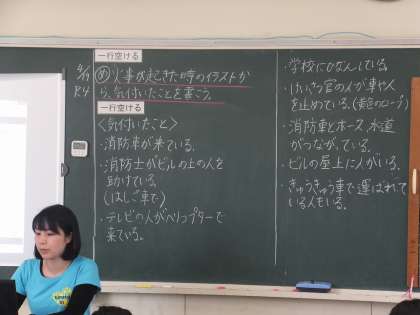 4/19
R4
一行空ける
め 火事が起きた時のイラストか
ら、気付いたことを書こう。
一行空ける
<気付いたこと>
・消防車が来ている。
・消防士がビルの上の人を
助けている。
(はしご車で)
・テレビの人がヘリコプターで
来ている。
・学校にひなんしている。
・けいさつ官の人が車や人
を止めている。(黄色のロープ)
・消防車とホース、水道
がつながっている。
・ビルの屋上に人がいる。
・きゅうきゅう車で運ばれて
いる人もいる。